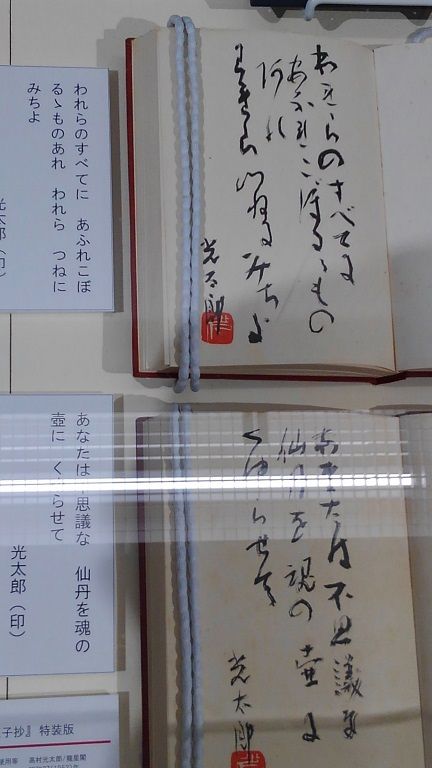 われらのすべてに
あふれこぼるゝもの
あれ
われらつねにみちよ
光太郎
われらのすべてに　あふれこぼ
るゝものあれ　われら　つねに
みちよ
光太郎（印）
あなたは不思議な
仙丹を魂の壺に
くゆらせて
光太郎
あなたは不思議な　仙丹を魂の
壺に　くゆらせて
光太郎（印）
子抄』 特装版
高村光太郎/龍星閣